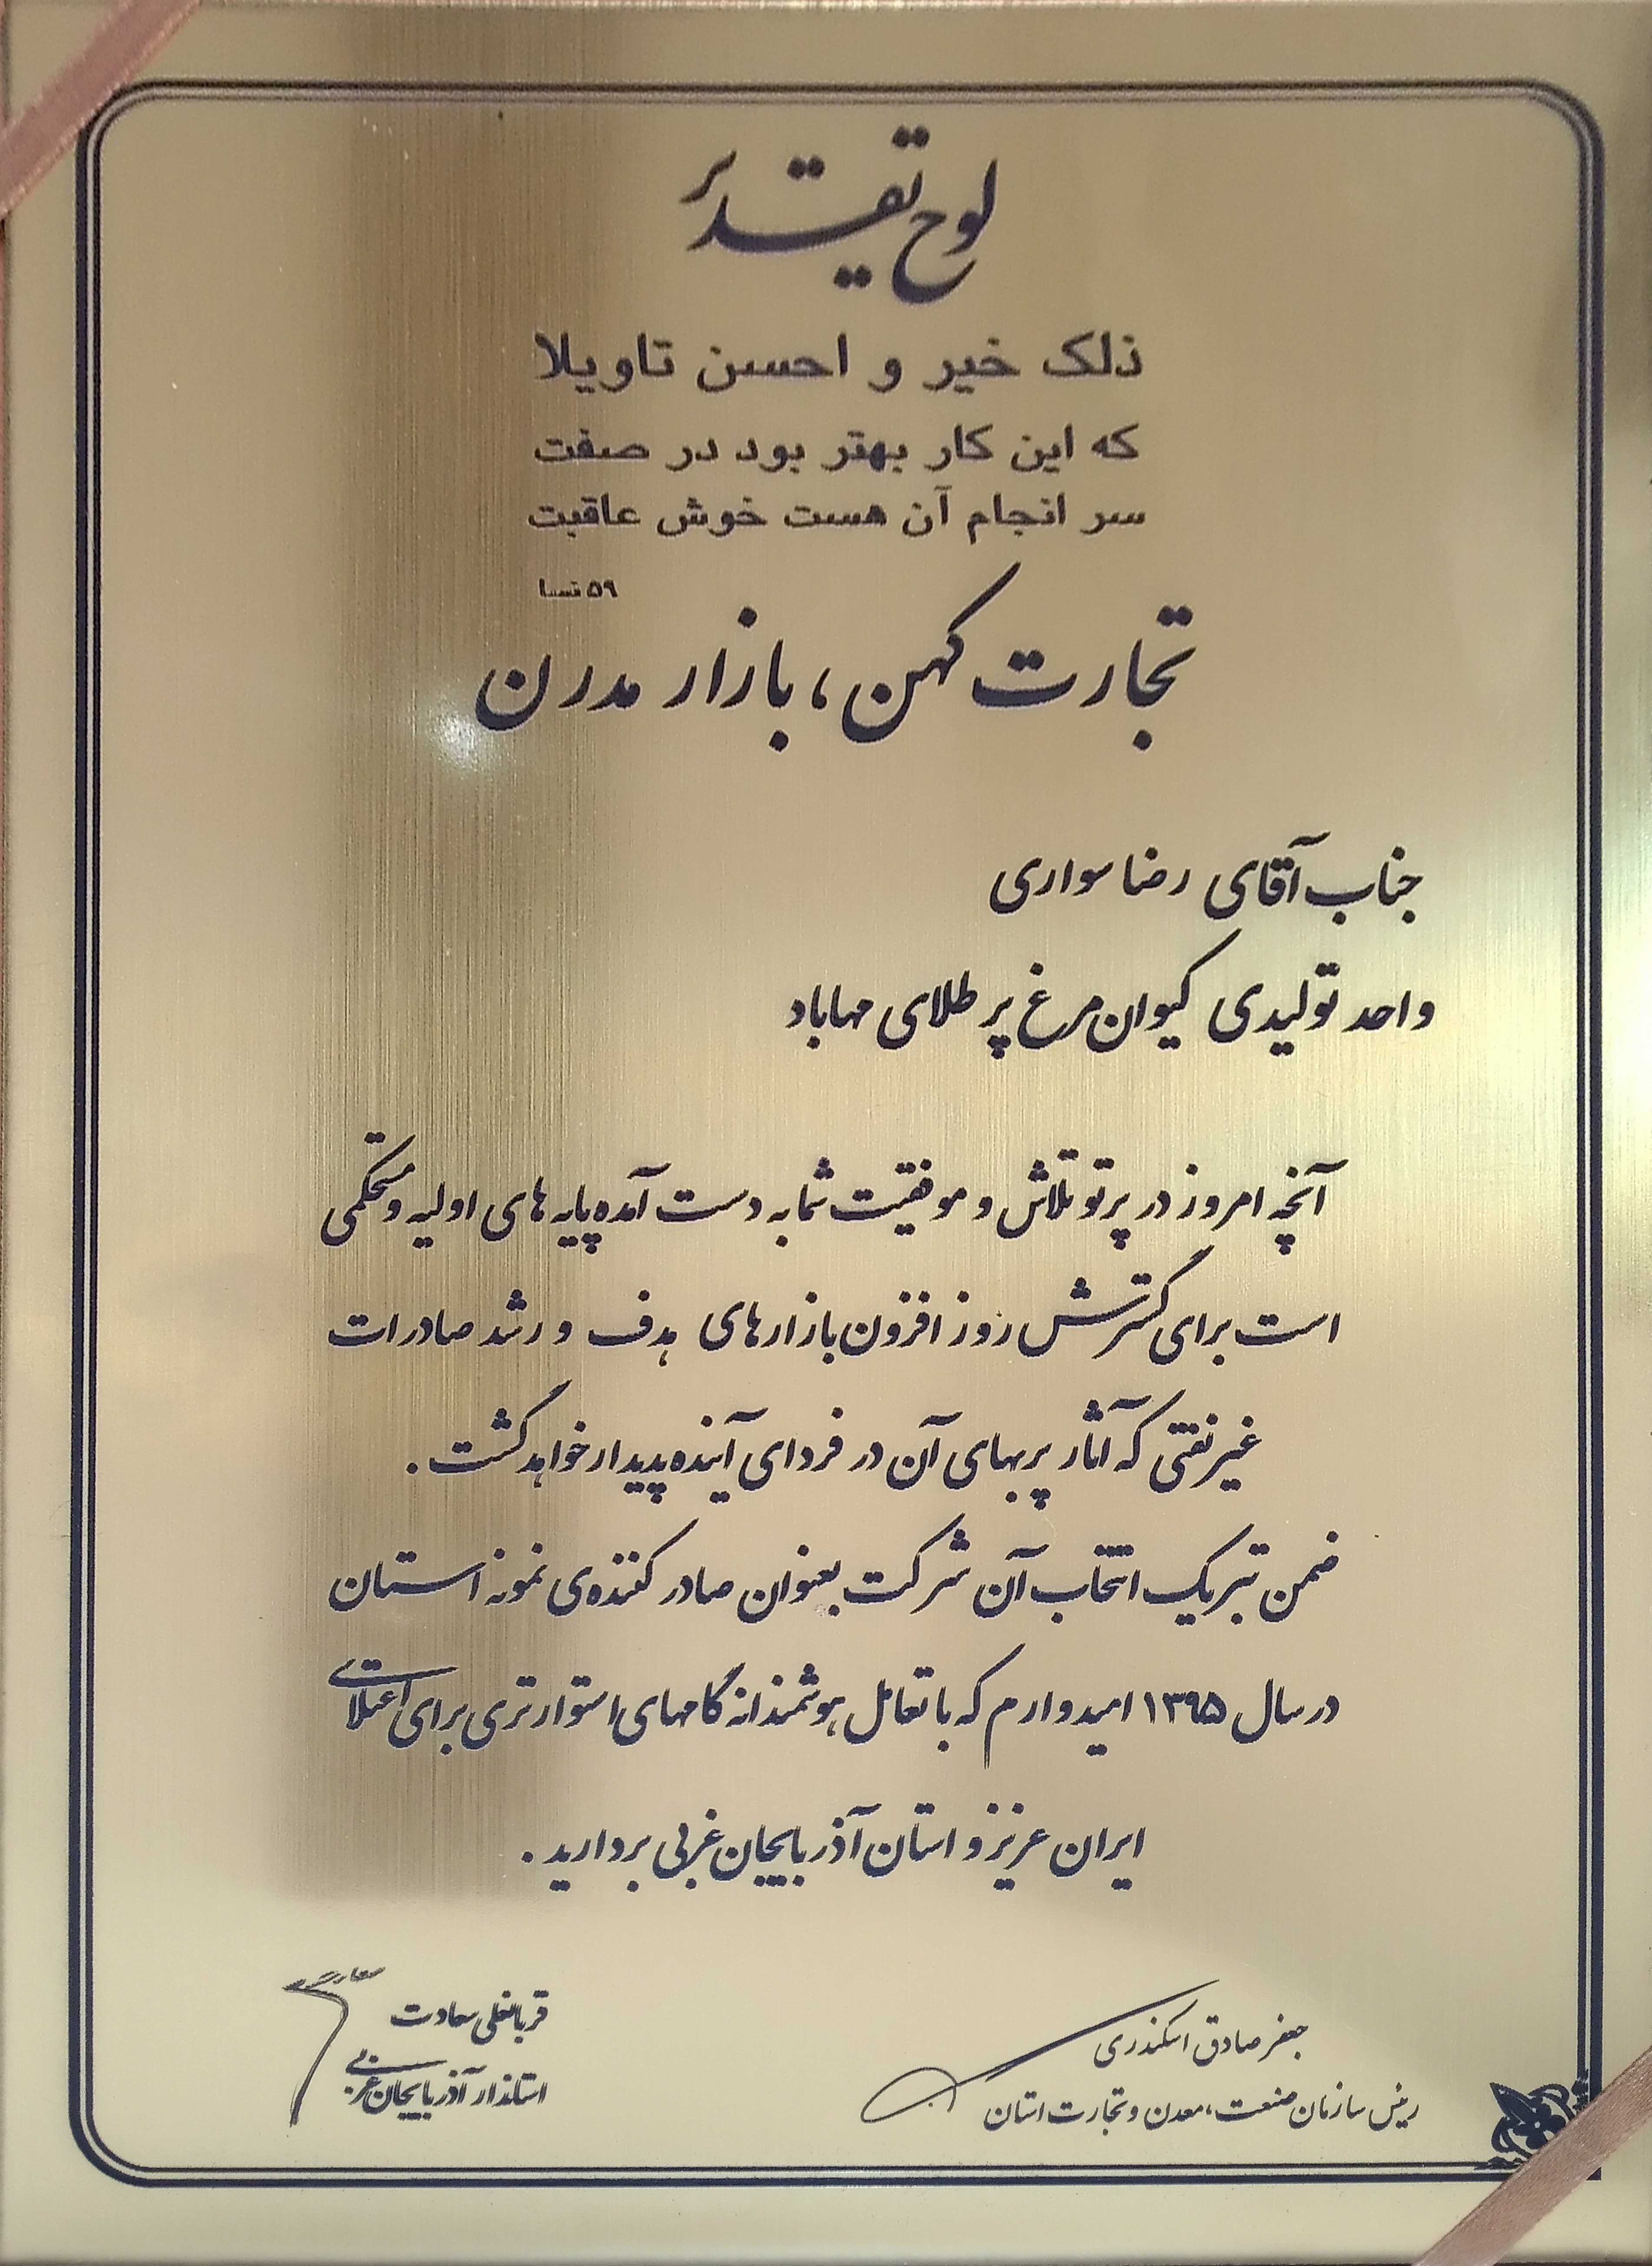 لوح تقدیر
ذلک خیر و احسن تاویلا
که این کار بهتر بود در صفت
سر انجام آن هست خوش عاقبت
۵۹ نسا
تجارت کهن، بازار مدرن
جناب آقای رضا سواری
واحد تولیدی کیوان مرغ پر طلای مهاباد
آنچه امروز در پرتو تلاش و موفقیت شما به دست آمده پایه های اولیه و مستحکمی
است برای گسترش روز افزون بازارهای هدف و رشد صادرات
غیر نفتی که آثار پربهای آن در فردای آینده پدیدار خواهد گشت.
ضمن تبریک انتخاب آن شرکت بعنوان صادر کننده‌ی نمونه استان
در سال ۱۳۹۵ امیدوارم که با تعامل هوشمندانه گامهای استوارتری برای اعتلای
ایران عزیز و استان آذربایجان غربی بردارید.
جعفر صادق اسکندری
رییس سازمان صنعت، معدن و تجارت استان
قربانعلی سعادت
استاندار آذربایجان غربی